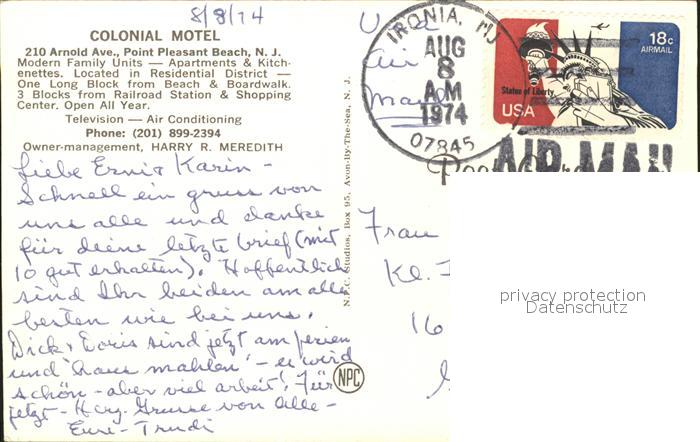 8/8/74
COLONIAL MOTEL
210 Arnold Ave., Point Pleasant Beach, N. J.
Modern Family Units — Apartments & Kitch-
enettes. Located in Residential District —
One Long Block from Beach & Boardwalk.
3 Blocks from Railroad Station & Shopping
Center. Open All Year.
Television — Air Conditioning
Phone: (201) 899-2394
Owner-management, HARRY R. MEREDITH
Liebe Erni + Karin -
Schnell ein gruss von
uns alle und danke
für deine letzte brief (mit
10 gut erhalten). Hoffentlich
sind Ihr beiden am alle
besten wie bei uns.
Dick + Doris sind jetzt am ferien
und 'haus mahlen' - es wird
schön - aber viel arbeit! Für
jetzt - Herz. Grusse von Alle -
Eure - Trudi
N.P.C. Studios, Box 95, Avon-By-The-Sea, N. J.
NPC
Via
Air
Mail
IRONIA, NJ
AUG
8
AM
1974
07845
18c
AIRMAIL
Statue of Liberty
USA
AIR MAIL
Frau
Kl.
16
privacy protection
Datenschutz